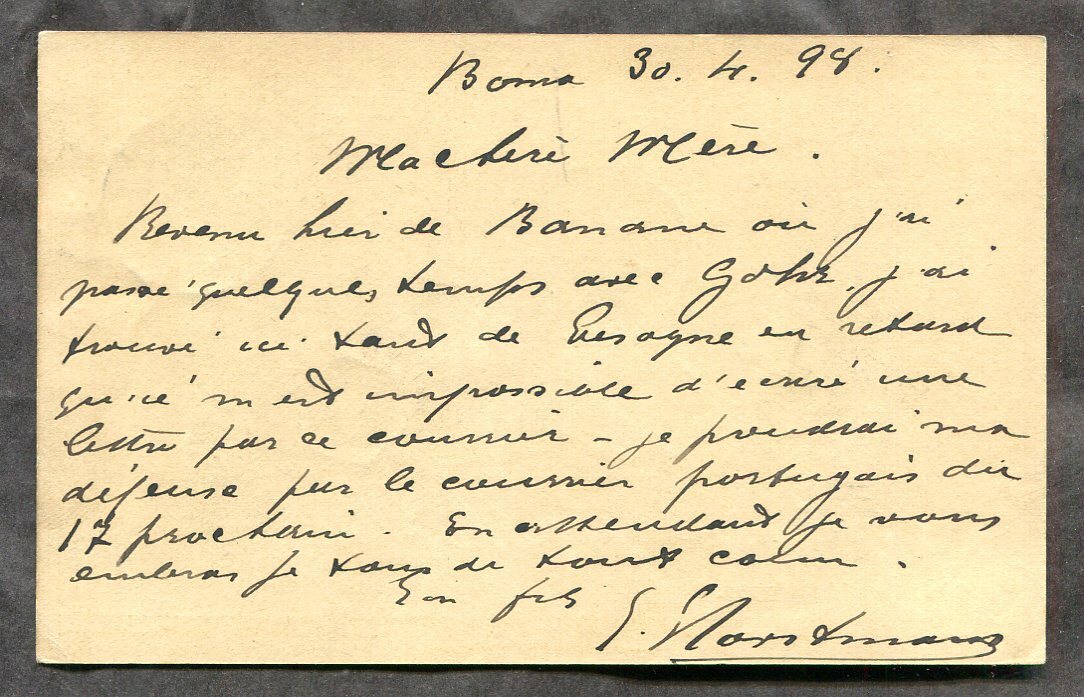 Boma 30. 4. 98.
Ma chère Mère.
Revenu hier de Banane où j'ai
passé quelques temps avec Gohr, j'ai
trouvé ici tant de besogne en retard
qu'il m'est impossible d'écrire une
lettre par ce courrier – je prendrai ma
défense par le courrier portugais du
17 prochain. En attendant je vous
embrasse tous de tout cœur.
Ton fils